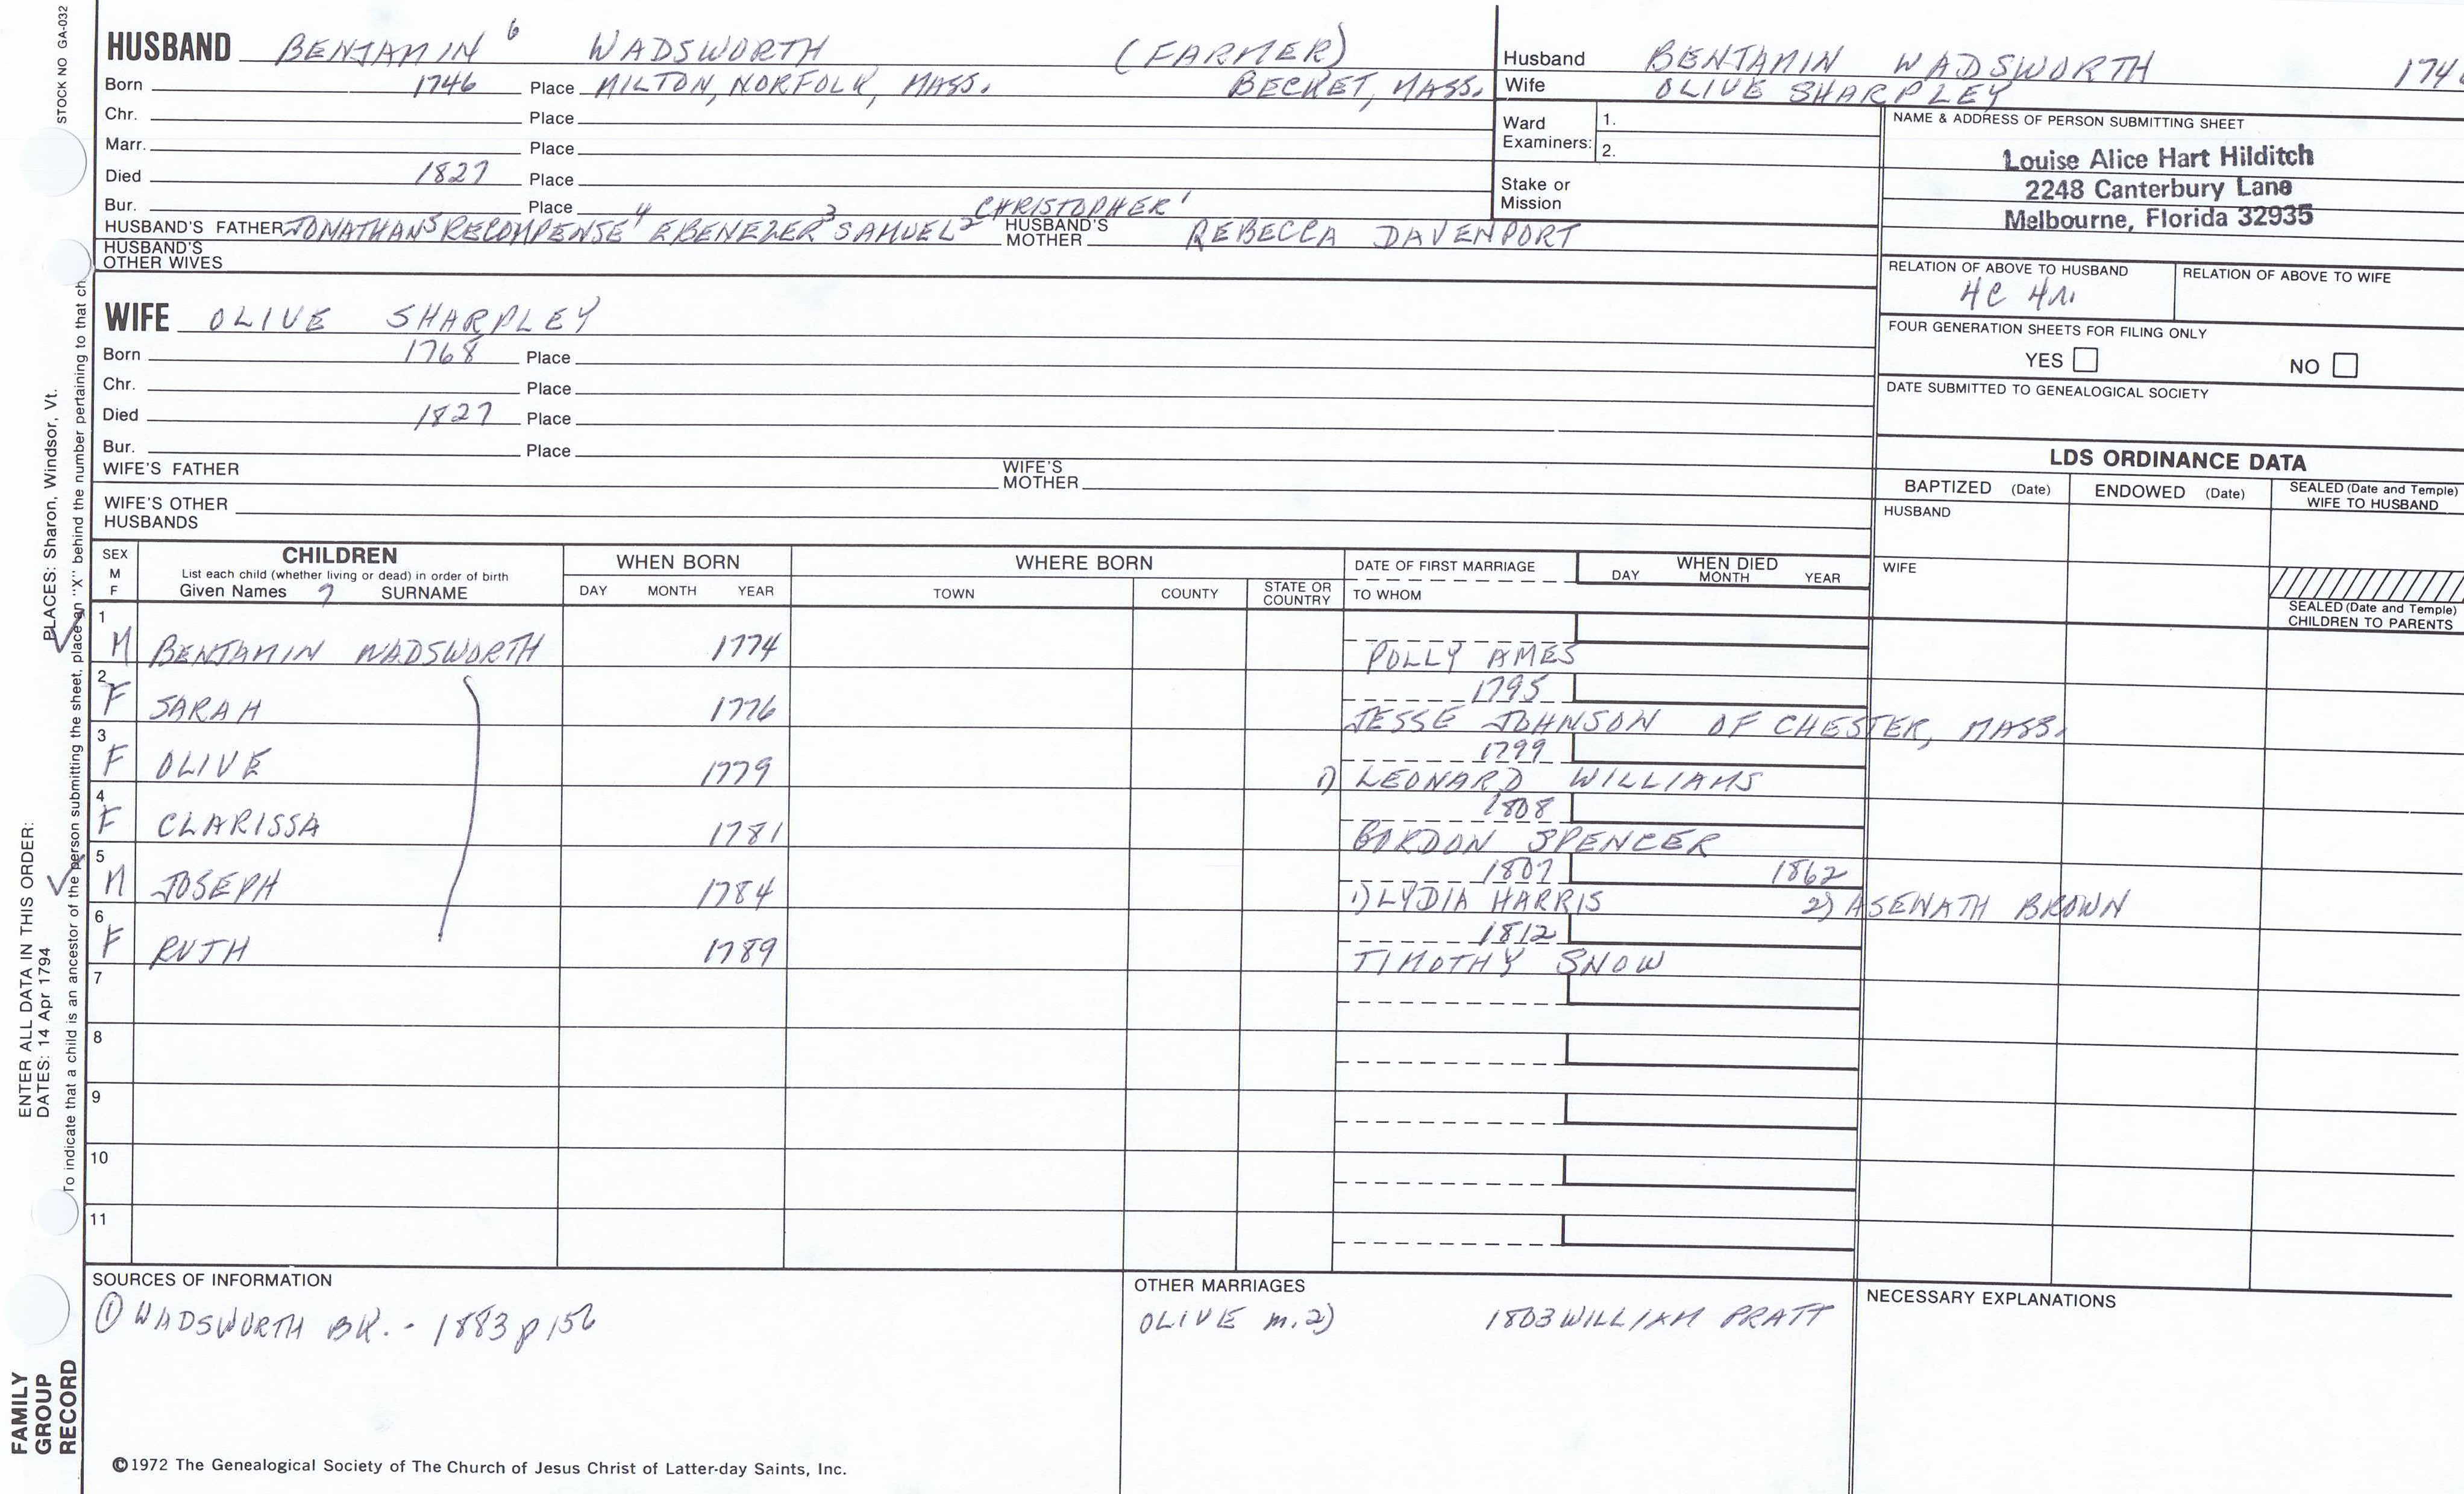 STOCK NO GA-032
HUSBAND BENJAMIN 6 WADSWORTH (FARMER)
Born 1746 Place MILTON, NORFOLK, MASS. BECKET, MASS.
Chr. Place
Marr. Place
Died 1827 Place
Bur. Place CHRISTOPHER 1
HUSBAND'S FATHER JONATHAN 5 RECOMPENSE 4 EBENEZER 3 SAMUEL 2 HUSBAND'S MOTHER REBECCA DAVENPORT
HUSBAND'S OTHER WIVES
Husband BENJAMIN WADSWORTH
Wife OLIVE SHARPLEY
Ward Examiners: 1.
2.
Stake or Mission
NAME & ADDRESS OF PERSON SUBMITTING SHEET
Louise Alice Hart Hilditch
2248 Canterbury Lane
Melbourne, Florida 32935
RELATION OF ABOVE TO HUSBAND RELATION OF ABOVE TO WIFE
4C 4r.
FOUR GENERATION SHEETS FOR FILING ONLY
YES NO
DATE SUBMITTED TO GENEALOGICAL SOCIETY
WIFE OLIVE SHARPLEY
Born 1768 Place
Chr. Place
Died 1827 Place
Bur. Place
WIFE'S FATHER WIFE'S MOTHER
WIFE'S OTHER HUSBANDS
LDS ORDINANCE DATA
BAPTIZED (Date) ENDOWED (Date) SEALED (Date and Temple) WIFE TO HUSBAND
HUSBAND
WIFE
SEALED (Date and Temple) CHILDREN TO PARENTS
SEX M F CHILDREN WHEN BORN WHERE BORN DATE OF FIRST MARRIAGE WHEN DIED
List each child (whether living or dead) in order of birth
Given Names 7 SURNAME DAY MONTH YEAR TOWN COUNTY STATE OR COUNTRY TO WHOM DAY MONTH YEAR
1
M BENJAMIN WADSWORTH 1774 POLLY AMES
2 1795
F SARAH 1776 JESSE JOHNSON OF CHESTER, MASS.
3 1799
F OLIVE 1779 1) LEONARD WILLIAMS
4 1808
F CLARISSA 1781 GORDON SPENCER
5 1807 1862
M JOSEPH 1784 1) LYDIA HARRIS 2) ASENATH BROWN
6 1812
F RUTH 1789 TIMOTHY SNOW
7
8
9
10
11
SOURCES OF INFORMATION
① WADSWORTH BK. - 1883 p156
OTHER MARRIAGES
OLIVE m. 2) 1803 WILLIAM PRATT
NECESSARY EXPLANATIONS
©1972 The Genealogical Society of The Church of Jesus Christ of Latter-day Saints, Inc.
FAMILY
GROUP
RECORD
ENTER ALL DATA IN THIS ORDER:
DATES: 14 Apr 1794
PLACES: Sharon, Windsor, Vt.
To indicate that a child is an ancestor of the person submitting the sheet, place an "X" behind the number pertaining to that ch